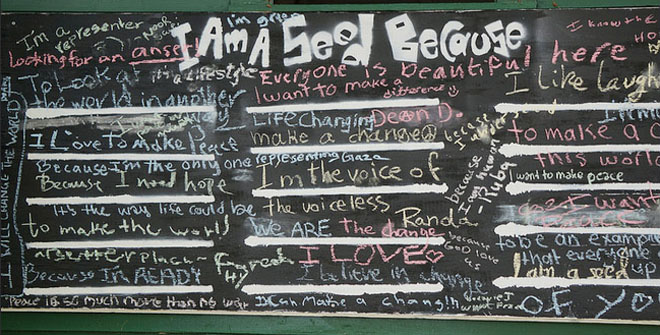 I'm a representer
I'm great
I AM A Seed Because
I know the
Looking for an answer
it's a lifestyle
Everyone is beautiful
I want to make a difference
I here
I like laugh
To Look at
the world in another
way
Life Changing Dean D.
make a change
to make a c
I Love to Make Peace
Because I'm the only one
representing Gaza
this world
Because I need hope
I'm the voice of
I want to make peace
It's the way life could be
the voiceless
Randa
just want
to make the world
We ARE the change
PEACE
I LOVE
to be an example
a Better place
I'm great
that everyone
Because I'm ALEADY
I belive in change
I am a seed up
Peace is so much more than no war
I Can Make a change in
OF YO
I WILL CHANGE THE WORLD
because I am human
-Nuba
because
GOD LOVES